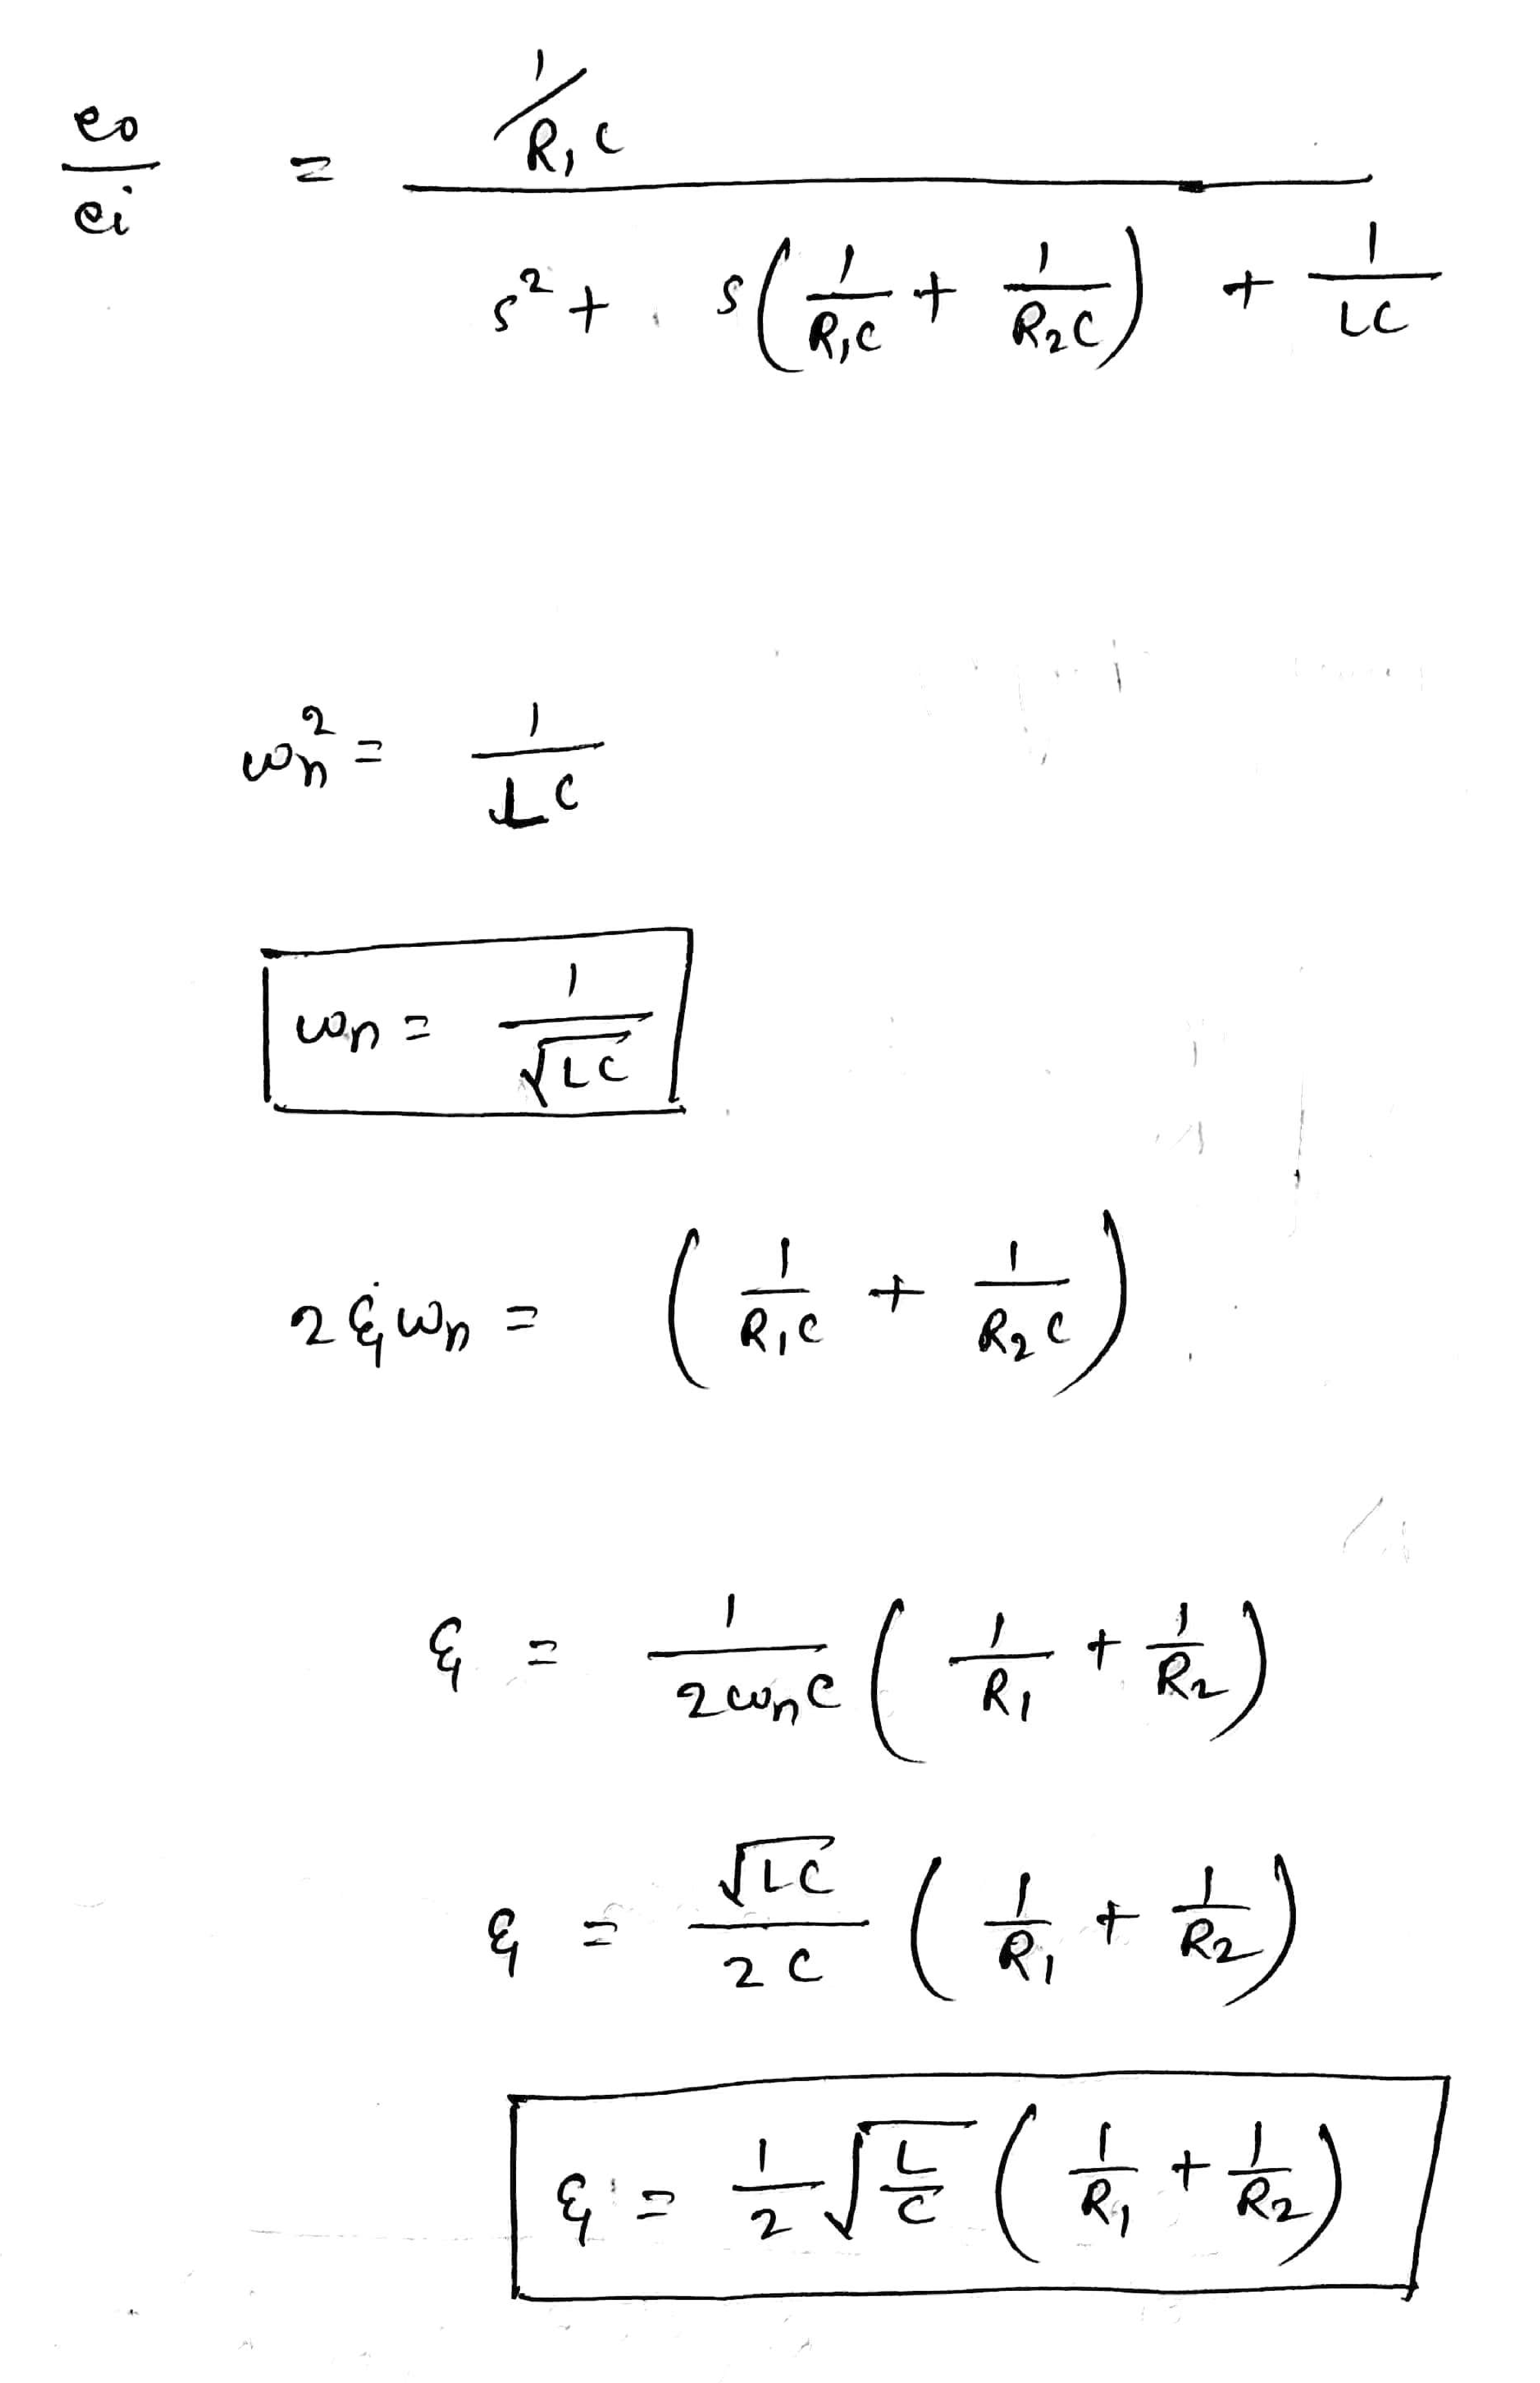 eo/ei = (1/R₁C) / (s² + s(1/R₁C + 1/R₂C) + 1/LC)
ωn² = 1/LC
ωn = 1/√LC
2ξωn = (1/R₁C + 1/R₂C)
ξ = 1/2ωnC (1/R₁ + 1/R₂)
ξ = √LC/2C (1/R₁ + 1/R₂)
ξ = 1/2 √(L/C) (1/R₁ + 1/R₂)